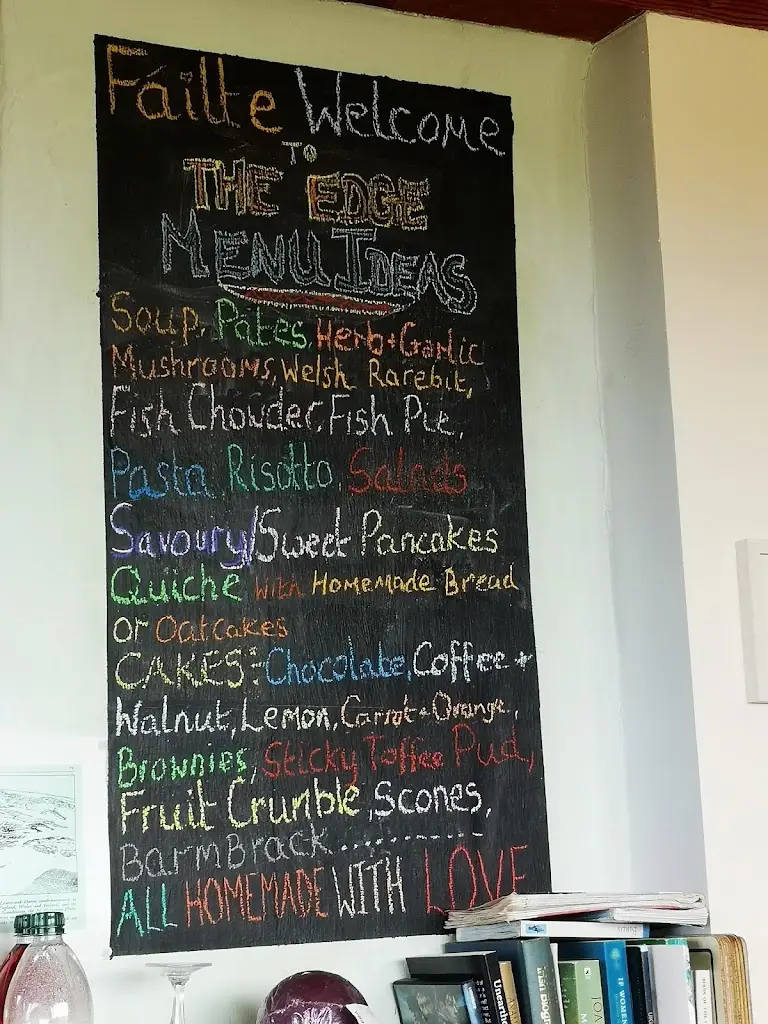 Fáilte Welcome
TO
THE EDGE
MENU IDEAS
Soup, Pates, Herb + Garlic
Mushrooms, Welsh Rarebit,
Fish Chowder, Fish Pie,
Pasta Risotto Salads
Savoury/Sweet Pancakes
Quiche with Homemade Bread
or Oatcakes
CAKES:- Chocolate, Coffee +
Walnut, Lemon, Carrot + Orange,
Brownies, Sticky Toffee Pud,
Fruit Crumble, Scones,
BarmBrack..........
ALL HOMEMADE WITH LOVE
BIRDS
Unearth
IF WOMEN